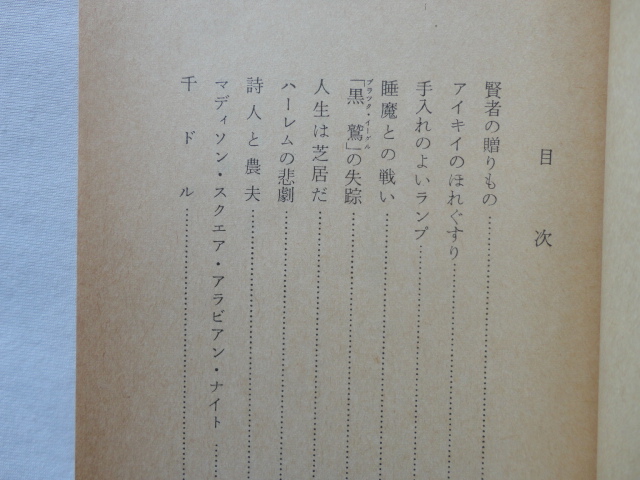 目次
賢者の贈りもの
アイキイのほれぐすり
手入れのよいランプ
睡魔との戦い
「黒鷲」の失踪
ブラック・イーグル
人生は芝居だ
ハーレムの悲劇
詩人と農夫
マディソン・スクエア・アラビアン・ナイト
千ドル